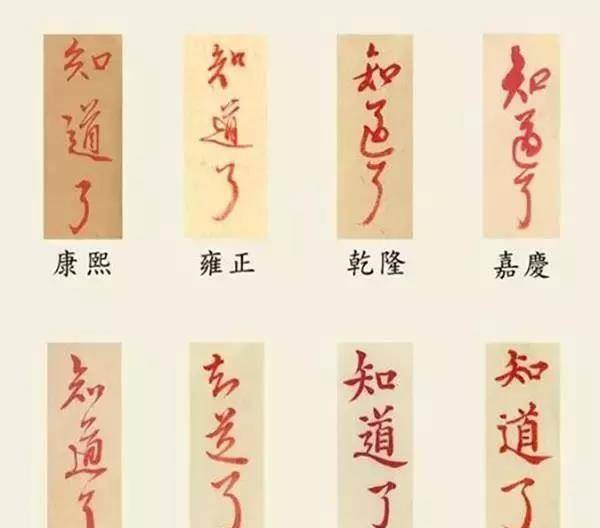 知道了
知道了
知道了
知道了
康熙
雍正
乾隆
嘉慶
知道了
知道了
知道了
知道了